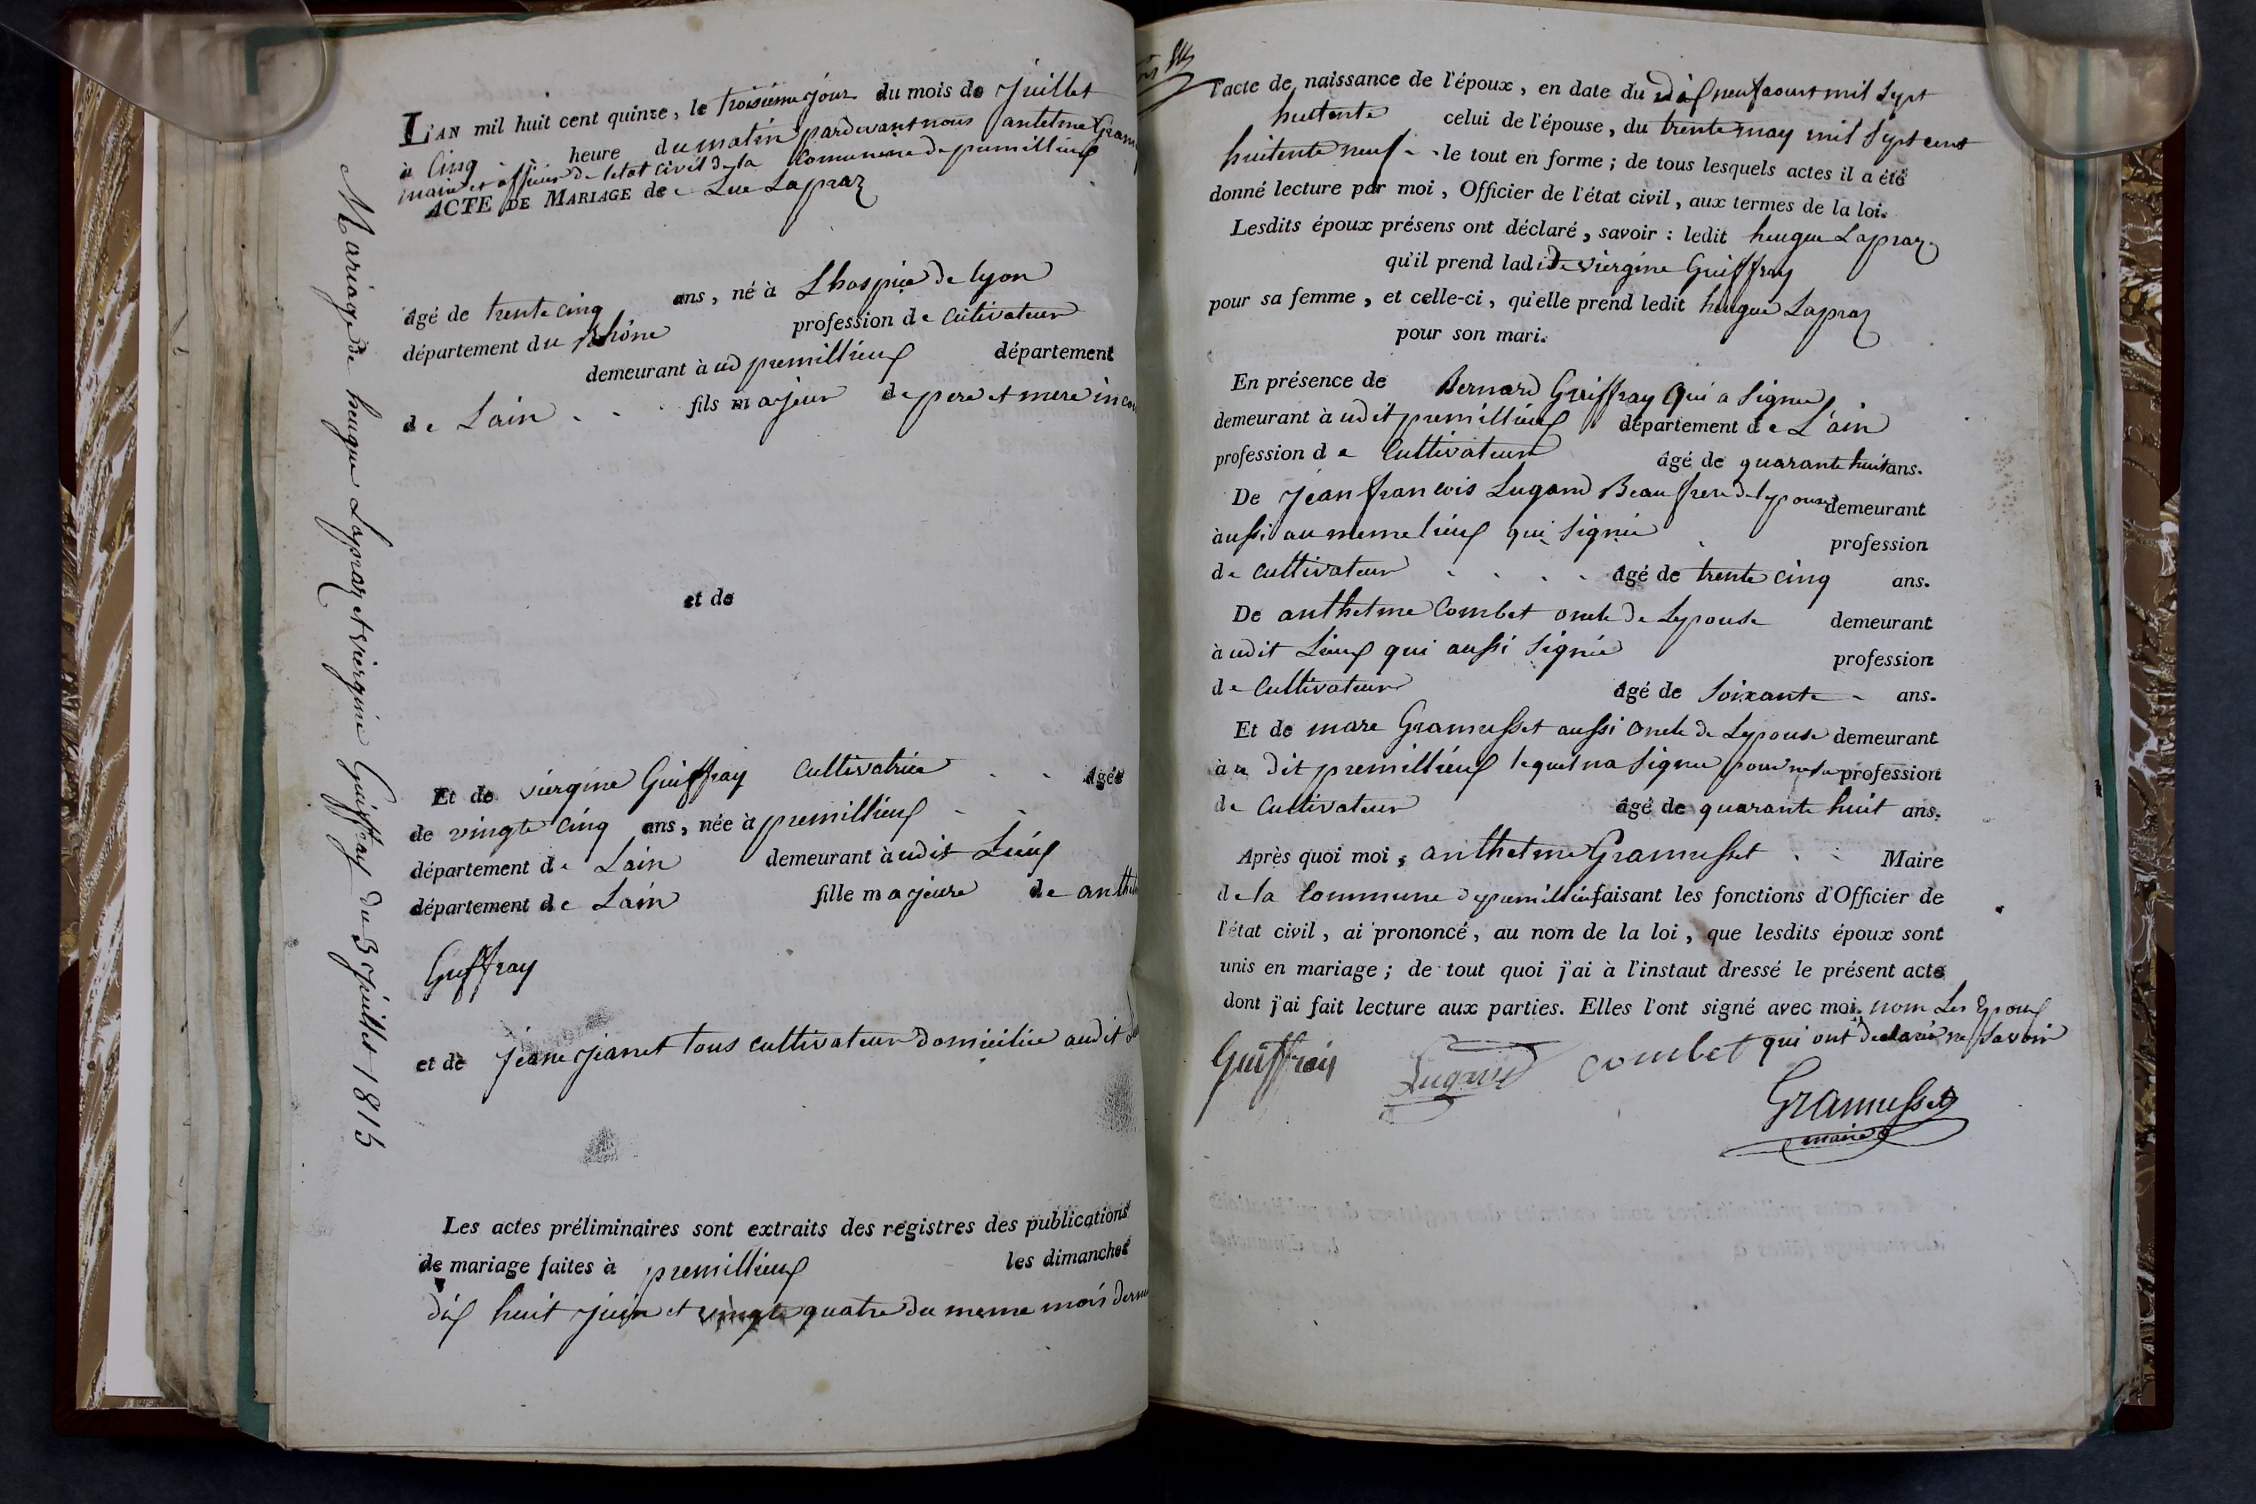 Mariage de heugue Lapraz et viergine Guiffray du 3 juillet 1815
L'AN mil huit cent quinze, le troisieme jour du mois de juillet
à Cinq heure du matin pardevant nous antelme Gram
maire et officier de letat civil de la Commune de premillieux
ACTE DE MARIAGE de Lapraz
âgé de trente cinq ans, né à Lhospice de lyon
département du Rhône profession de Cutivateur
demeurant à ud premillieux département
de Lain fils majeur de pere et mere incon
et de
Et de viergine Guiffray Cultivatrice âgée
de vingte cinq ans, née à premillieux
département de Lain demeurant à udit Lieux
département de Lain fille majeure de anthel
Guffray
et de jeane jeanet tous cultivateur domicilié audit
Les actes préliminaires sont extraits des registres des publications
de mariage faites à premillieux les dimanches
dix huit juin et vingte quatre du meme mois dernie
l'acte de naissance de l'époux, en date du dix neuf aoust mil sept
huctente celui de l'épouse, du trente may mil sept cent
huitente neuf le tout en forme; de tous lesquels actes il a été
donné lecture par moi, Officier de l'état civil, aux termes de la loi.
Lesdits époux présens ont déclaré, savoir: ledit heugue Lapraz
qu'il prend ladite viergine Guiffray
pour sa femme, et celle-ci, qu'elle prend ledit heugue Lapraz
pour son mari.
En présence de Bernard Guiffray qui a signé
demeurant à udit premillieux département de L'ain
profession de Cultivateur âgé de quarante huit ans.
De jean francois Lugand Beaufrere de lepouse demeurant
à ussi au meme lieux qui signié profession
de cultivateur âgé de trente cinq ans.
De anthelme Combet oncle de Lepouse demeurant
à udit Lieux qui aussi signié profession
de Cultivateur âgé de soixante ans.
Et de marc Gramusset aussi oncle de Lepouse demeurant
à u dit premillieux lequel na signé pour profession
de Cultivateur âgé de quarante huit ans.
Après quoi moi, anthelme Gramusset Maire
de la Commune de premillieu faisant les fonctions d'Officier de
l'état civil, ai prononcé, au nom de la loi, que lesdits époux sont
unis en mariage; de tout quoi j'ai à l'instaut dressé le présent acte
dont j'ai fait lecture aux parties. Elles l'ont signé avec moi, nom Les Epoux
qui ont declaré ne savoir
Guiffray Lugand combet
Gramusset
maire